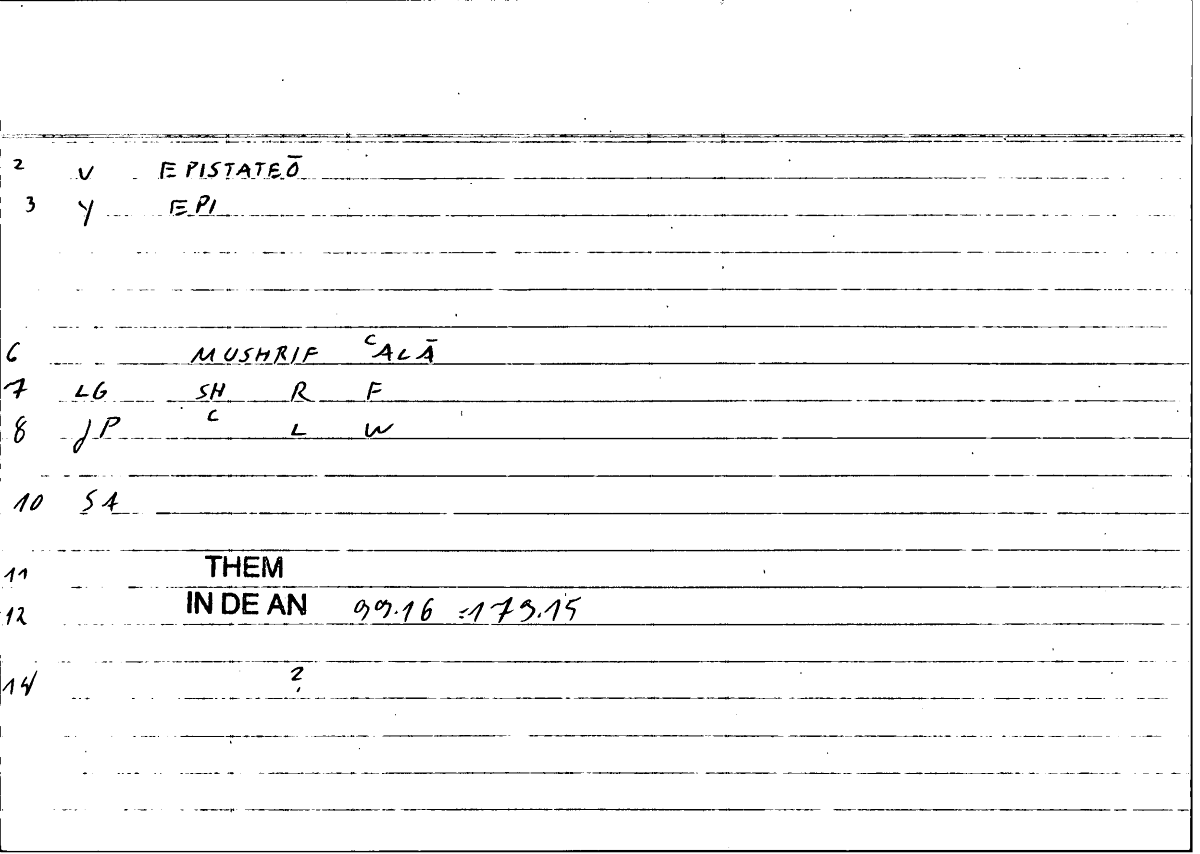 2 V EPISTATEŌ
3 Y EPI
6 MUSHRIF ᶜALĀ
7 LG SH R F
8 JP ᶜ L W
10 SA
11 THEM
12 IN DE AN 99.16 =179.15
14 ?